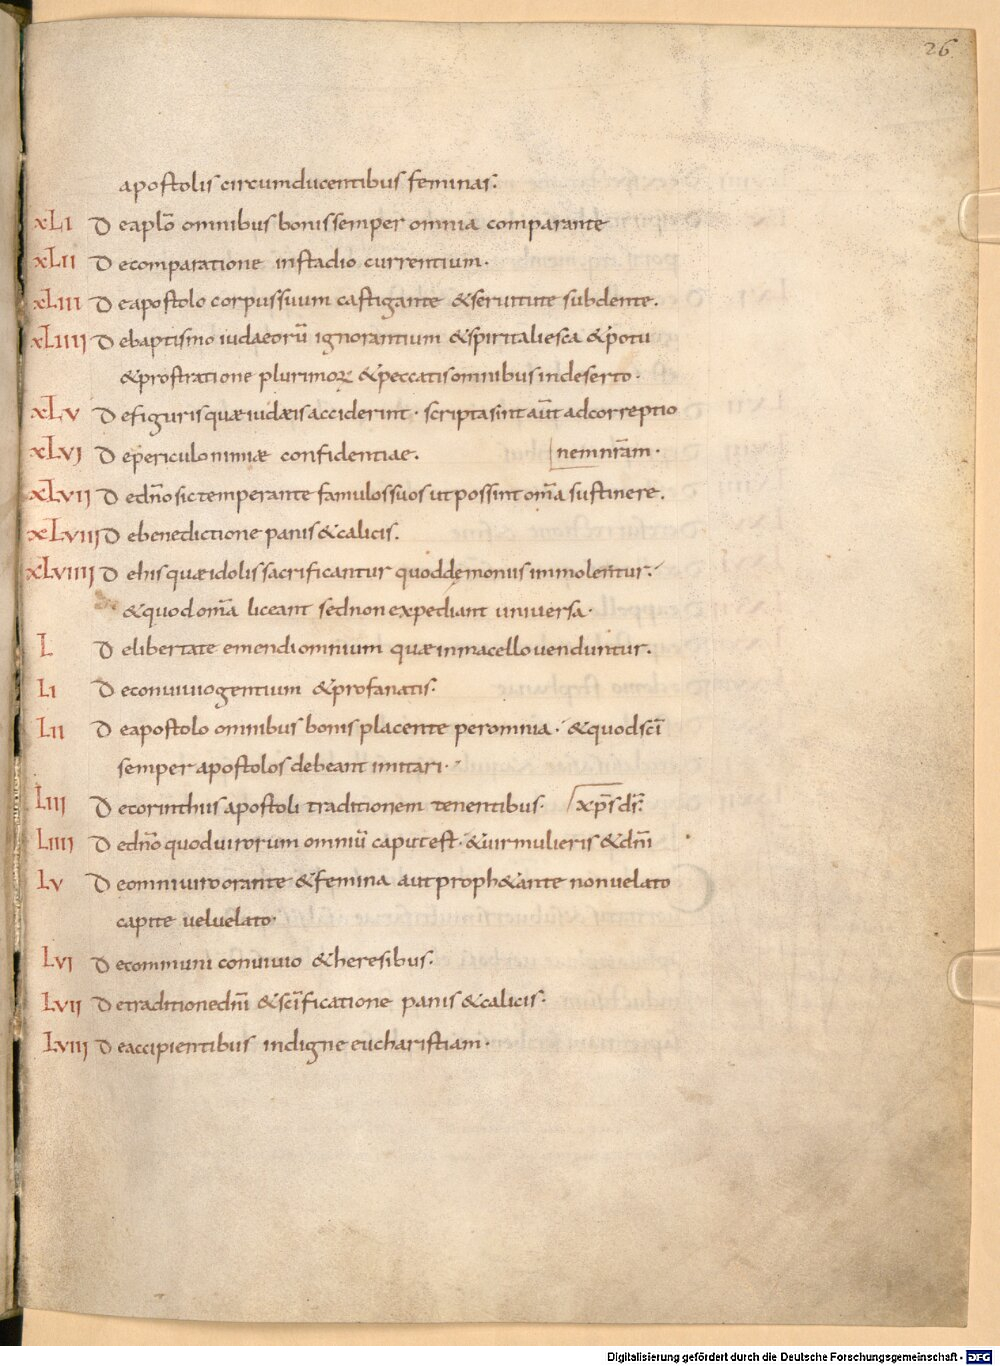 26
apostolis circumducentibus feminas.
XLI De aplo omnibus bonis semper omnia comparante
XLII De comparatione in stadio currentium.
XLIII De apostolo corpus suum castigante & seruitute subdente.
XLIIII De baptismo iudaeorū ignorantium & spiritali esca & potu
& prostratione plurimorꝝ & peccatis omnibus in deserto.
XLV De figuris quæ iudæis acciderint. scripta sint aūt ad correptio
XLVI De periculo nimiæ confidentiae. nem nr̄am.
XLVII De dn̄o sic temperante famulos suos ut possint om̄a sustinere.
XLVIII De benedictione panis & calicis.
XLVIIII De his quæ idolis sacrificantur quod dęmoniis immolentur.
& quod om̄a liceant sed non expediant uniuersa.
L De libertate emendi omnium quæ in macello uenduntur.
LI De conuiuio gentium & profanatis.
LII De apostolo omnibus bonis placente per omnia. & quod sc̄i
semper apostolos debeant imitari.
LIII De corinthiis apostoli traditionem tenentibus. xp̄s dr̄.
LIIII De dn̄o quod uirorum omniū caput est. & uir mulieris & dn̄i
LV De omni uiro orante & femina aut proph&ante non uelato
capite uel uelato.
LVI De communi conuiuio & heresibus.
LVII De traditione dn̄i & sc̄ificatione panis & calicis.
LVIII De accipientibus indigne eucharistiam.
Digitalisierung gefördert durch die Deutsche Forschungsgemeinschaft - DFG